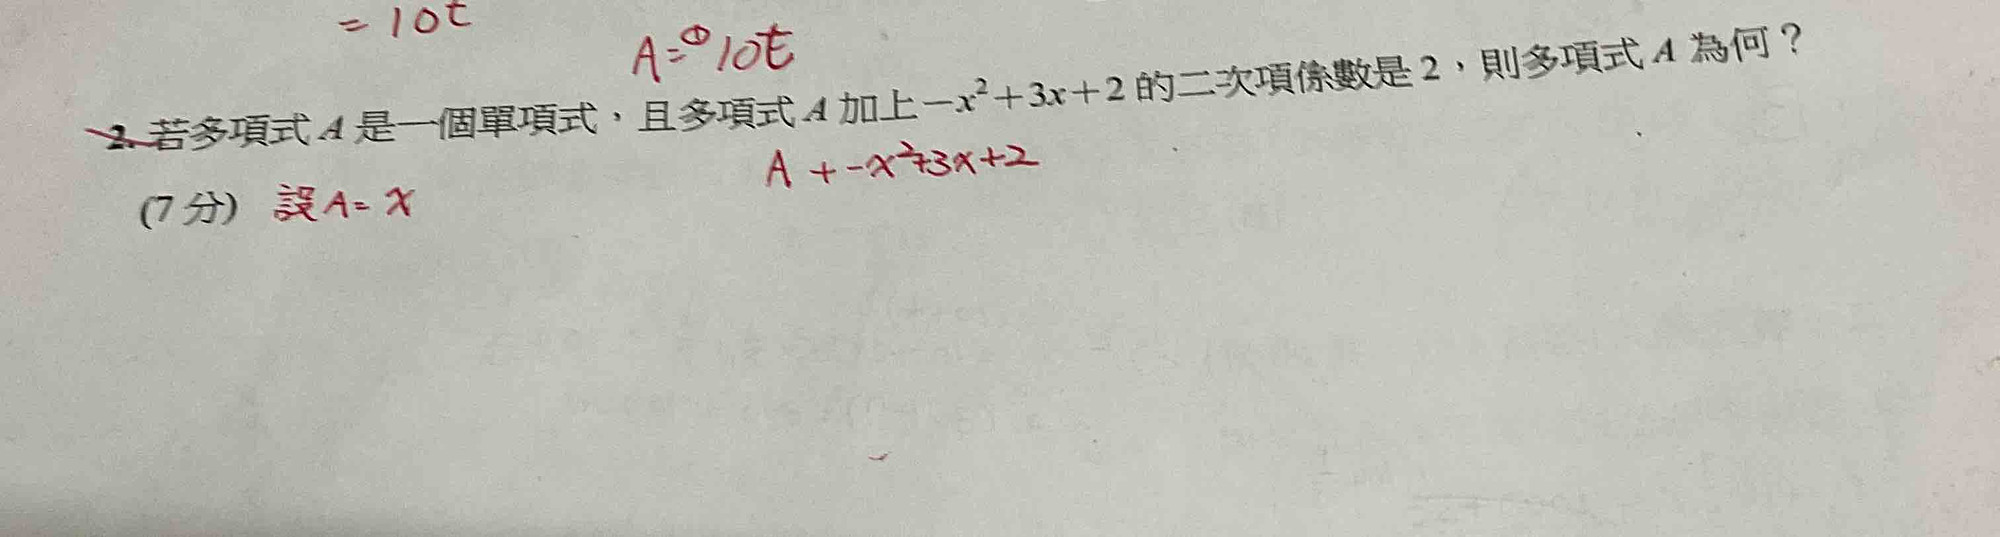 = 10t
A=① 10t
2. 若多項式 A 是一個單項式，且多項式 A 加上 −x²+3x+2 的二次項係數是 2，則多項式 A 為何？
A + -x²+3x+2
(7 分) 設 A= x